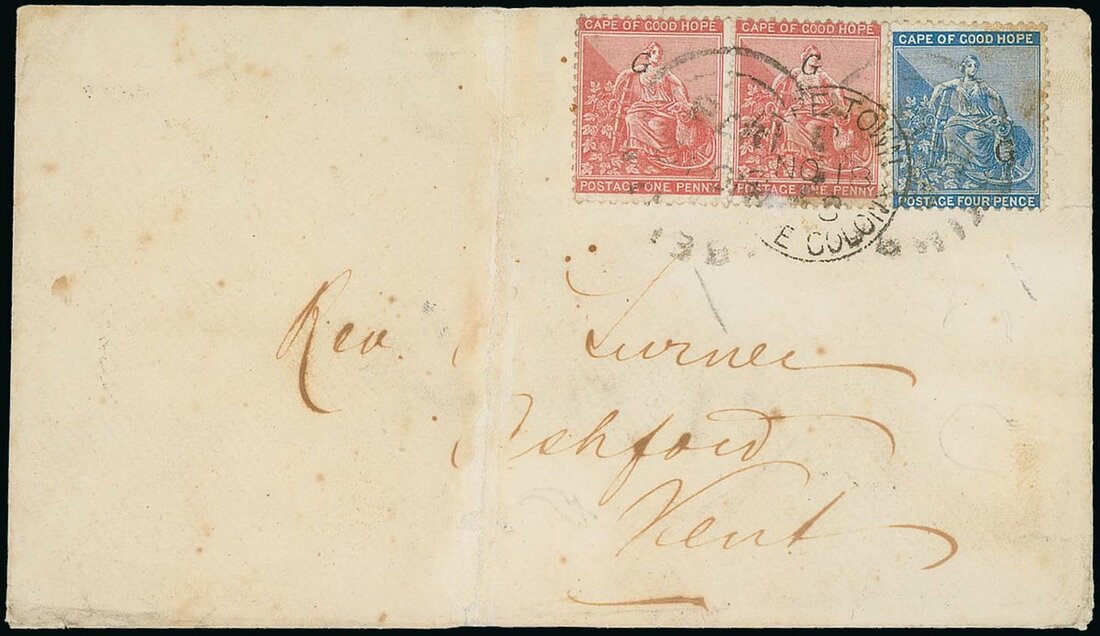 CAPE OF GOOD HOPE
G
POSTAGE ONE PENNY
CAPE OF GOOD HOPE
G
POSTAGE ONE PENNY
CAPE OF GOOD HOPE
G
POSTAGE FOUR PENCE
TOWN
NO 10
E COLONY
Rev. Turner
Ashford
Kent